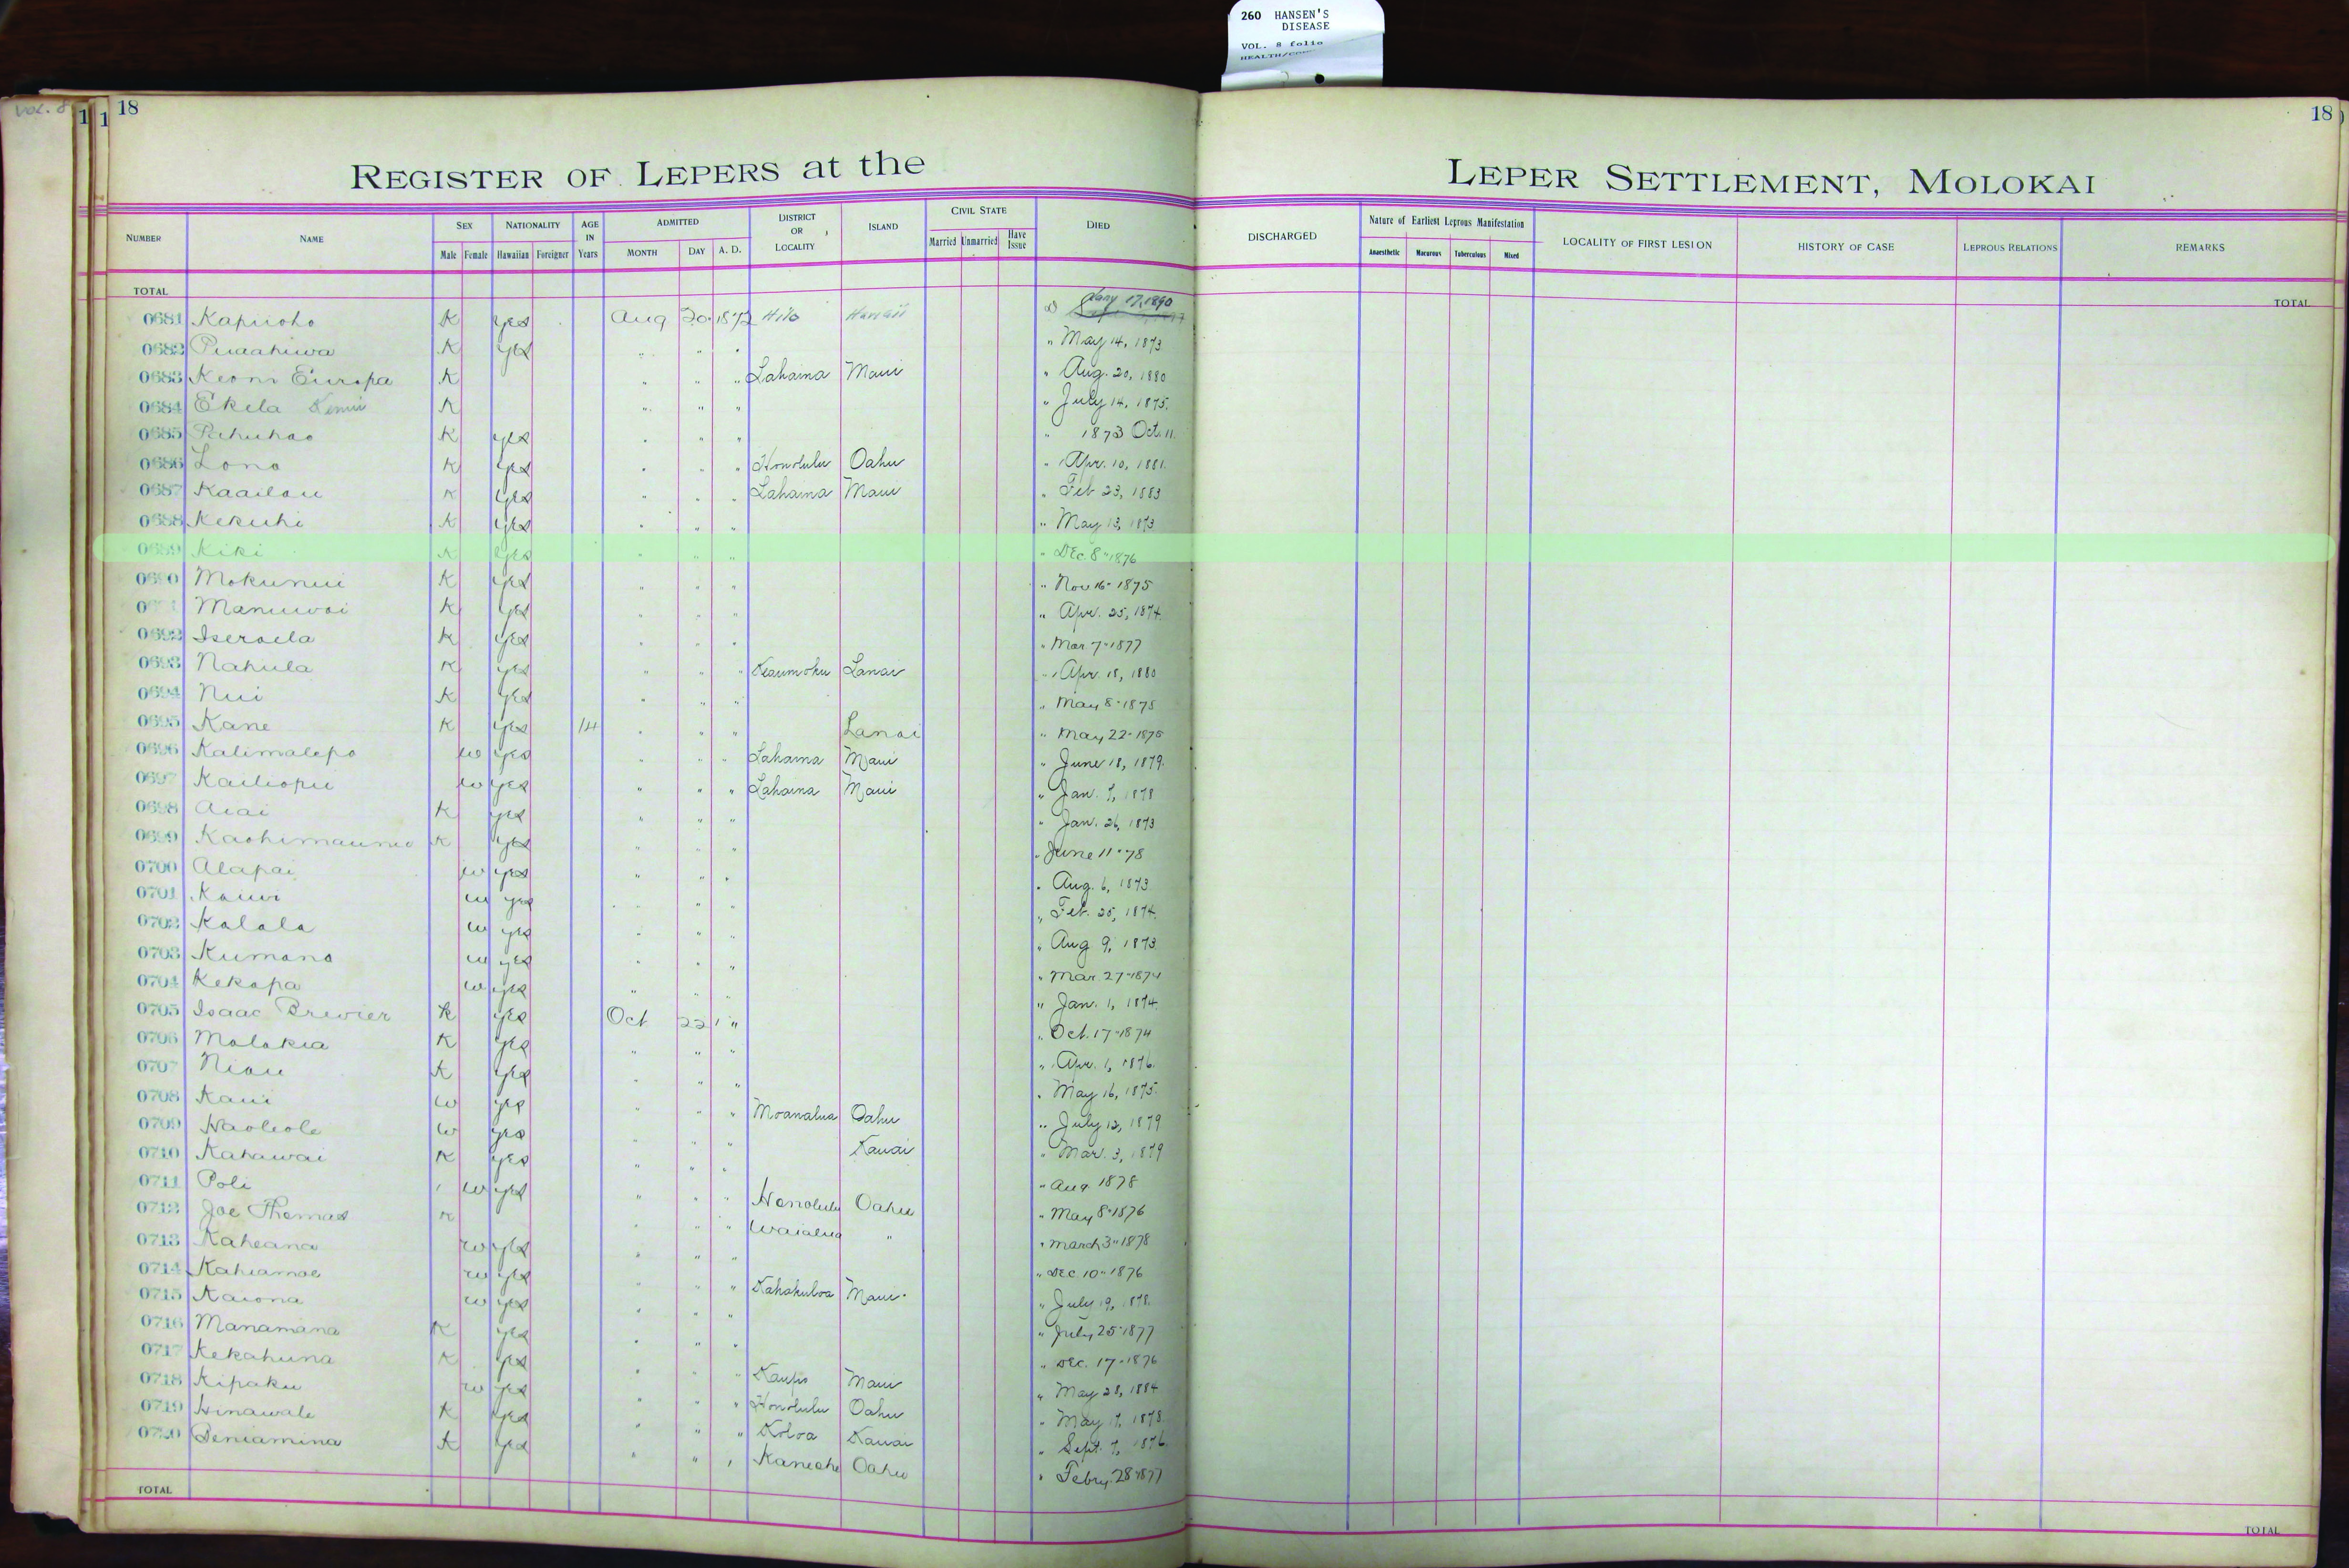 260 HANSEN'S
DISEASE
VOL. 8 folio
VOL. 8
1 1 18 18
REGISTER OF LEPERS at the LEPER SETTLEMENT, MOLOKAI
NUMBER NAME SEX Male Female NATIONALITY Hawaiian Foreigner AGE IN Years ADMITTED MONTH DAY A. D. DISTRICT OR LOCALITY ISLAND CIVIL STATE Married Unmarried Have Issue DIED DISCHARGED Nature of Earliest Leprous Manifestation Anaesthetic Macurous Tuberculous Mixed LOCALITY OF FIRST LESION HISTORY OF CASE LEPROUS RELATIONS REMARKS
TOTAL TOTAL
0681 Kapuoho K yes Aug 20 1872 Hilo Hawaii Jany 17, 1890
0682 Puaahiwa K yes " " " " May 14, 1873
0683 Keoni Europa K " " " Lahaina Maui " Aug. 20, 1880
0684 Ekela K " " " " July 14, 1875.
0685 Pahuhao K yes " " " " 1873 Oct. 11.
0686 Lono K yes " " " Honolulu Oahu " Apr. 10, 1881.
0687 Kaailau K yes " " " Lahaina Maui " Feb 23, 1883
0688 Kekuhi K yes " " " " May 13, 1873
0689 Kiki K yes " " " " Dec. 8" 1876
0690 Mokunui K yes " " " " Nov 16- 1875
Manuwai K yes " " " " Apr. 25, 1874.
0692 Iseraela K yes " " " " Mar 7" 1877
0693 Nahula K yes " " " Keaumoku Lanai " Apr. 18, 1880
0694 Nui K yes " " " " May 8" 1875
0695 Kane K yes 14 " " " Lanai " May 22- 1875
0696 Kalimalepo w yes " " " Lahaina Maui " June 18, 1879.
0697 Kailiopu w yes " " " Lahaina Maui " Jan. 7, 1878
0698 Aiai K yes " " " " Jan. 26, 1873
0699 K yes " " " " June 11" 78
0700 Alapai w yes " " " " Aug. 6, 1873
0701 Kauwi w yes " " " " Feb. 25, 1874.
0702 Kalala w yes " " " " Aug 9, 1873
0703 Kumano w yes " " " " Mar 27" 1874
0704 Kekapa w yes " " " " Jan. 1, 1874.
0705 Isaac Brewier K yes Oct 22 " " Oct. 17" 1874
0706 Molokia K yes " " " " Apr. 1, 1876.
0707 Niau K yes " " " " May 16, 1875.
0708 Kaui w yes " " " Moanalua Oahu " July 12, 1879
0709 Haoleole w yes " " " Kauai " Mar. 3, 1879
0710 Kahawai K yes " " " " Aug 1878
0711 Poli w yes " " " Honolulu Oahu " May 8" 1876
0712 Joe Thomas K " " " Waialua " " March 3" 1878
0713 Kaheana w yes " " " " Dec 10" 1876
0714 Kahiamoe w yes " " " Kahakuloa Maui " July 19, 1878.
0715 Kaiona w yes " " " " July 25" 1877
0716 Manamana K yes " " " " Dec. 17- 1876
0717 Kekahuna K yes " " " Kaupo Maui " May 28, 1884
0718 Kipaku w yes " " " Honolulu Oahu " May 17, 1878.
0719 Hinawale K yes " " " Koloa Kauai " Sept. 7, 1876.
0720 Beniamina K yes " " " Kaneohe Oahu " Febry. 28" 1877
TOTAL TOTAL